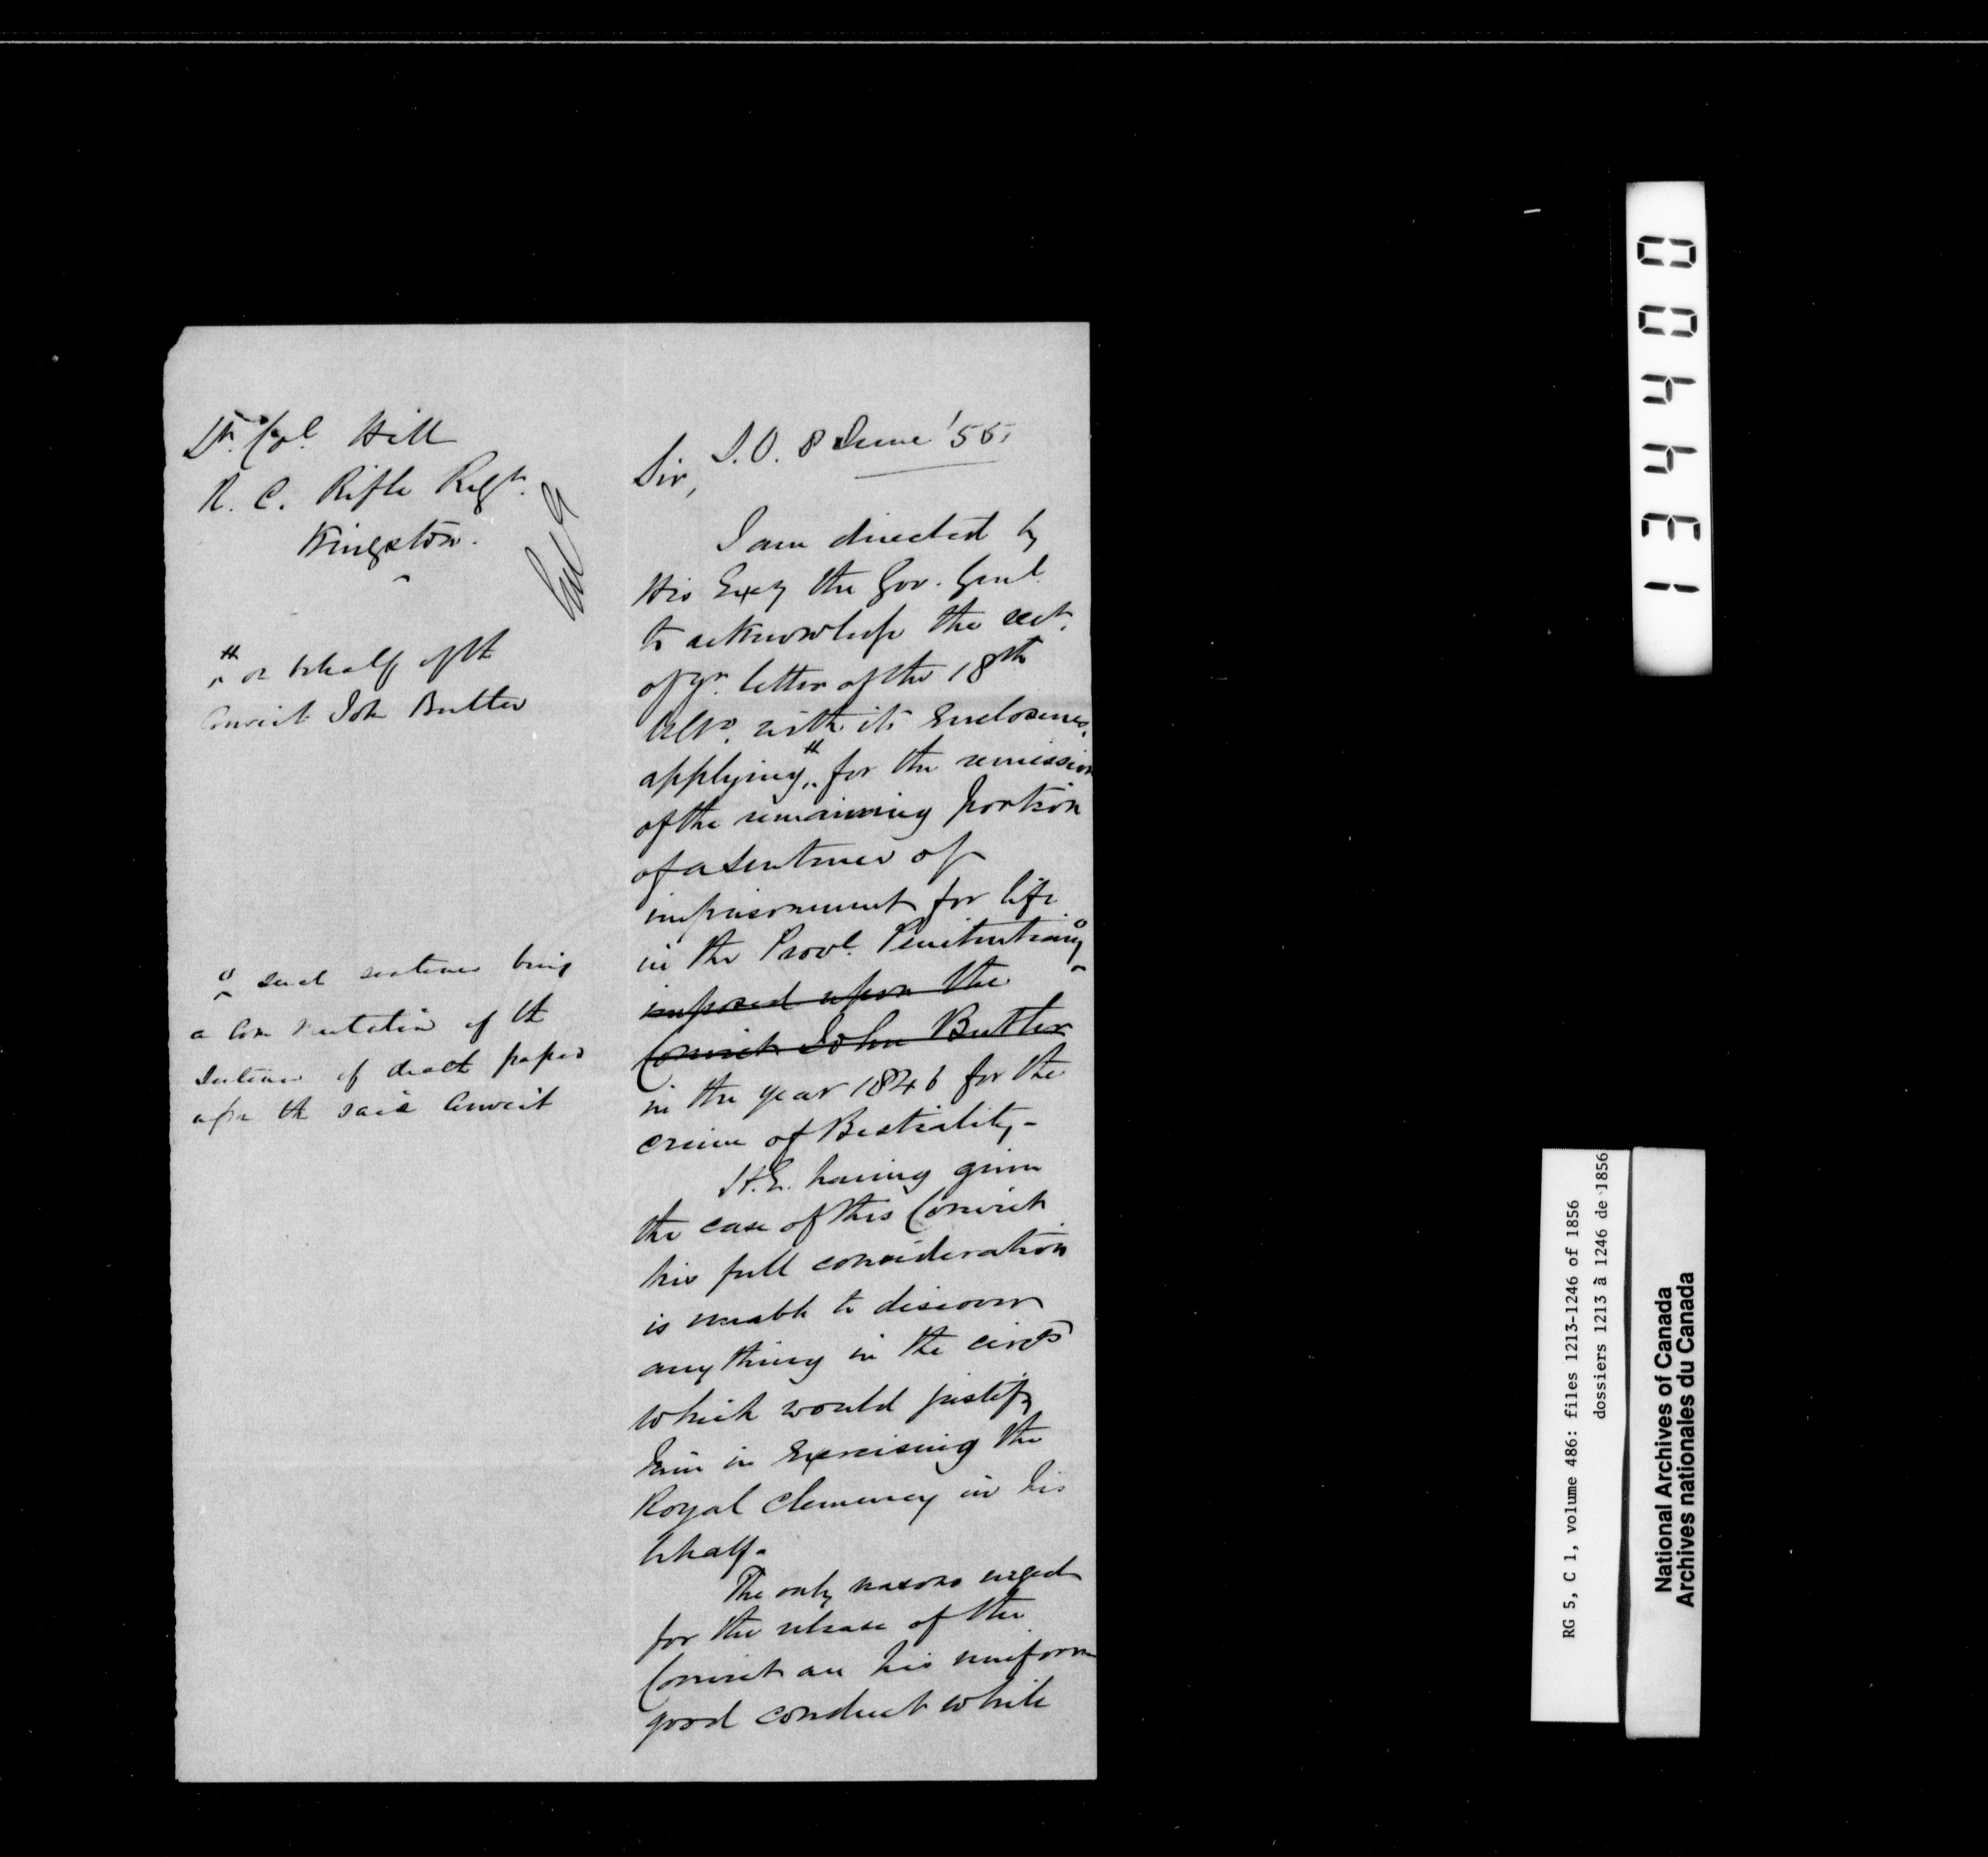 Lt. Col. Hill
R. C. Rifle Regt.
Kingston.
# on behalf of the
Convict John Butler
o such sentence being
a Commutation of the
Sentence of death passed
upon the said Convict
S.O. 8 June '56
Sir,
I am directed by
His Excy the Gov. Genl.
to acknowledge the rect.
of yr. letter of the 18th
Ulto. with its Enclosures,
applying # for the remission
of the remaining portion
of a Sentence of
imprisonment for life
in the Provl. Penitentiary o
imposed upon the
Convict John Butler
in the year 1846 for the
crime of Bestiality -
H.E. having given
the case of this Convict
his full consideration
is unable to discover
any thing in the circs
which would justify
him in Exercising the
Royal Clemency in his
behalf.
The only reasons urged
for the release of the
Convict are his uniform
good conduct while
004431
RG 5, C 1, volume 486: files 1213-1246 of 1856
dossiers 1213 à 1246 de 1856
National Archives of Canada
Archives nationales du Canada